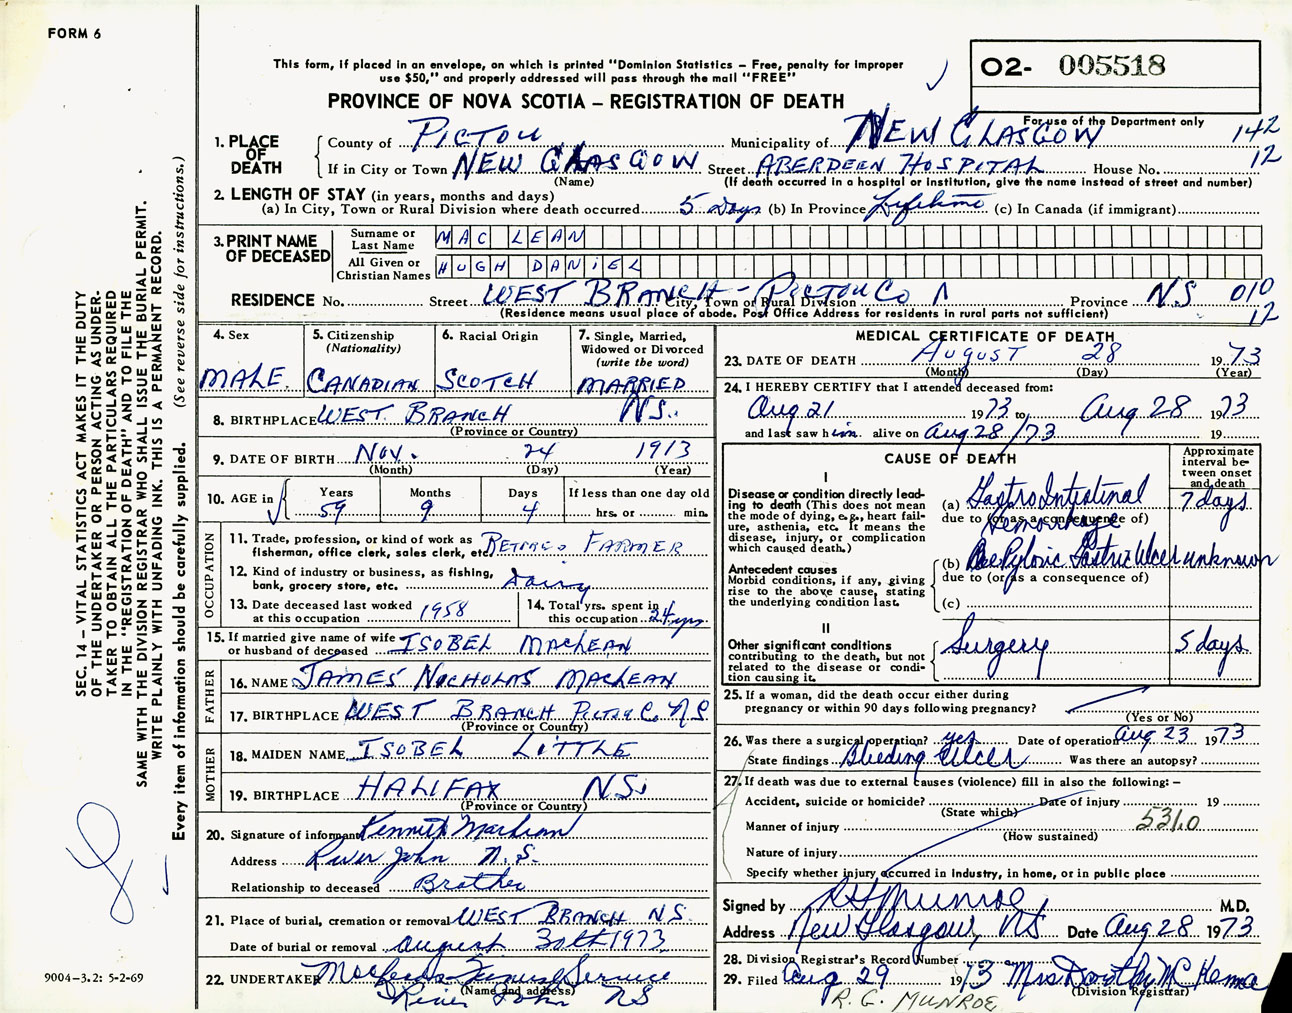 FORM 6
This form, if placed in an envelope, on which is printed "Dominion Statistics – Free, penalty for improper
use $50," and properly addressed will pass through the mail "FREE"
O2- 005518
PROVINCE OF NOVA SCOTIA – REGISTRATION OF DEATH
For use of the Department only
1. PLACE OF DEATH
County of PICTOU Municipality of NEW GLASGOW 142
If in City or Town NEW GLASGOW Street ABERDEEN HOSPITAL House No. 12
(Name) (If death occurred in a hospital or institution, give the name instead of street and number)
2. LENGTH OF STAY (in years, months and days)
(a) In City, Town or Rural Division where death occurred 5 Days (b) In Province Lifetime (c) In Canada (if immigrant)
3. PRINT NAME OF DECEASED
Surname or Last Name MAC LEAN
All Given or Christian Names HUGH DANIEL
RESIDENCE No. Street WEST BRANCH - PICTOU CO City, Town or Rural Division Province N.S 010
(Residence means usual place of abode. Post Office Address for residents in rural parts not sufficient) 12
4. Sex
MALE
5. Citizenship (Nationality)
CANADIAN
6. Racial Origin
SCOTCH
7. Single, Married, Widowed or Divorced (write the word)
MARRIED
8. BIRTHPLACE WEST BRANCH N.S.
(Province or Country)
9. DATE OF BIRTH Nov. 24 1913
(Month) (Day) (Year)
10. AGE in Years 59 Months 9 Days 4 If less than one day old
hrs. or min.
OCCUPATION
11. Trade, profession, or kind of work as fisherman, office clerk, sales clerk, etc. RETIRED FARMER
12. Kind of industry or business, as fishing, bank, grocery store, etc. Dairy
13. Date deceased last worked at this occupation 1958
14. Total yrs. spent in this occupation 24 yrs
15. If married give name of wife or husband of deceased ISOBEL MACLEAN
FATHER
16. NAME JAMES NICHOLAS MACLEAN
17. BIRTHPLACE WEST BRANCH PICTOU C. N.S.
(Province or Country)
MOTHER
18. MAIDEN NAME ISOBEL LITTLE
19. BIRTHPLACE HALIFAX N.S.
(Province or Country)
20. Signature of informant Kenneth MacLean
Address River John N.S.
Relationship to deceased Brother
21. Place of burial, cremation or removal WEST BRANCH N.S.
Date of burial or removal August 30th 1973
22. UNDERTAKER MacLeods Funeral Service
(Name and address)
River John NS
MEDICAL CERTIFICATE OF DEATH
23. DATE OF DEATH August 28 1973
(Month) (Day) (Year)
24. I HEREBY CERTIFY that I attended deceased from:
Aug 21 1973 to Aug 28 1973
and last saw him alive on Aug 28/73 19
CAUSE OF DEATH
Approximate interval between onset and death
I
Disease or condition directly leading to death (This does not mean the mode of dying, e.g., heart failure, asthenia, etc. It means the disease, injury, or complication which caused death.)
(a) Gastro Intestinal Hemorrhage 7 days
due to (or as a consequence of)
Antecedent causes
Morbid conditions, if any, giving rise to the above cause, stating the underlying condition last.
(b) PrePyloric Gastric Ulcer unknown
due to (or as a consequence of)
(c)
II
Other significant conditions
contributing to the death, but not related to the disease or condition causing it.
Surgery 5 days
25. If a woman, did the death occur either during pregnancy or within 90 days following pregnancy?
(Yes or No)
26. Was there a surgical operation? yes Date of operation Aug 23 1973
State findings Bleeding Ulcer Was there an autopsy?
27. If death was due to external causes (violence) fill in also the following: –
Accident, suicide or homicide? Date of injury 19
(State which)
Manner of injury 531.0
(How sustained)
Nature of injury
Specify whether injury occurred in industry, in home, or in public place
Signed by RG Munroe M.D.
Address New Glasgow, NS Date Aug 28 1973
28. Division Registrar's Record Number
29. Filed Aug 29 1973 Mrs Dorothy McKenna
(Division Registrar)
R. G. MUNROE
SEC. 14 – VITAL STATISTICS ACT MAKES IT THE DUTY
OF THE UNDERTAKER OR PERSON ACTING AS UNDER-
TAKER TO OBTAIN ALL THE PARTICULARS REQUIRED
IN THE "REGISTRATION OF DEATH" AND TO FILE THE
SAME WITH THE DIVISION REGISTRAR WHO SHALL ISSUE THE BURIAL PERMIT.
WRITE PLAINLY WITH UNFADING INK. THIS IS A PERMANENT RECORD.
Every item of information should be carefully supplied. (See reverse side for instructions.)
9004–3.2: 5-2-69